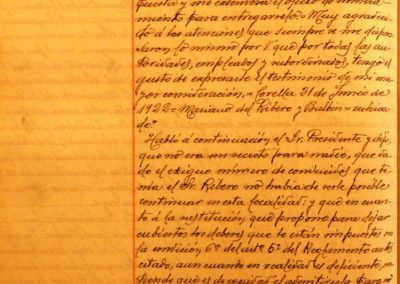 puesta y me extenderá el oficio de nombra-
miento para entregarselo.= Muy agradeci-
do á las atenciones que siempre se me dispen-
saron lo mismo por V. que por todas las au-
toridades, empleados y subordinados, tengo el
gusto de expresarle el testimonio de mi ma-
yor consideración.= Corella 21 de Junio de
1922= Mariano del Ribero y = rubrica-
do."
Habló á continuación el Sr. Presidente y dijo,
que no era un secreto para nadie, que da-
do el exiguo número de conducidos que te-
nía el Sr. Ribero no había de serle posible
continuar en esta localidad; y que en cuan-
to á la sustitución que propone para dejar
cubiertos los deberes que le están impuestos en
la condición 6ª del artº 5º del Reglamento antes
citado, aun cuando en realidad es deficiente, en-
tiendo que es de equidad el admitirla